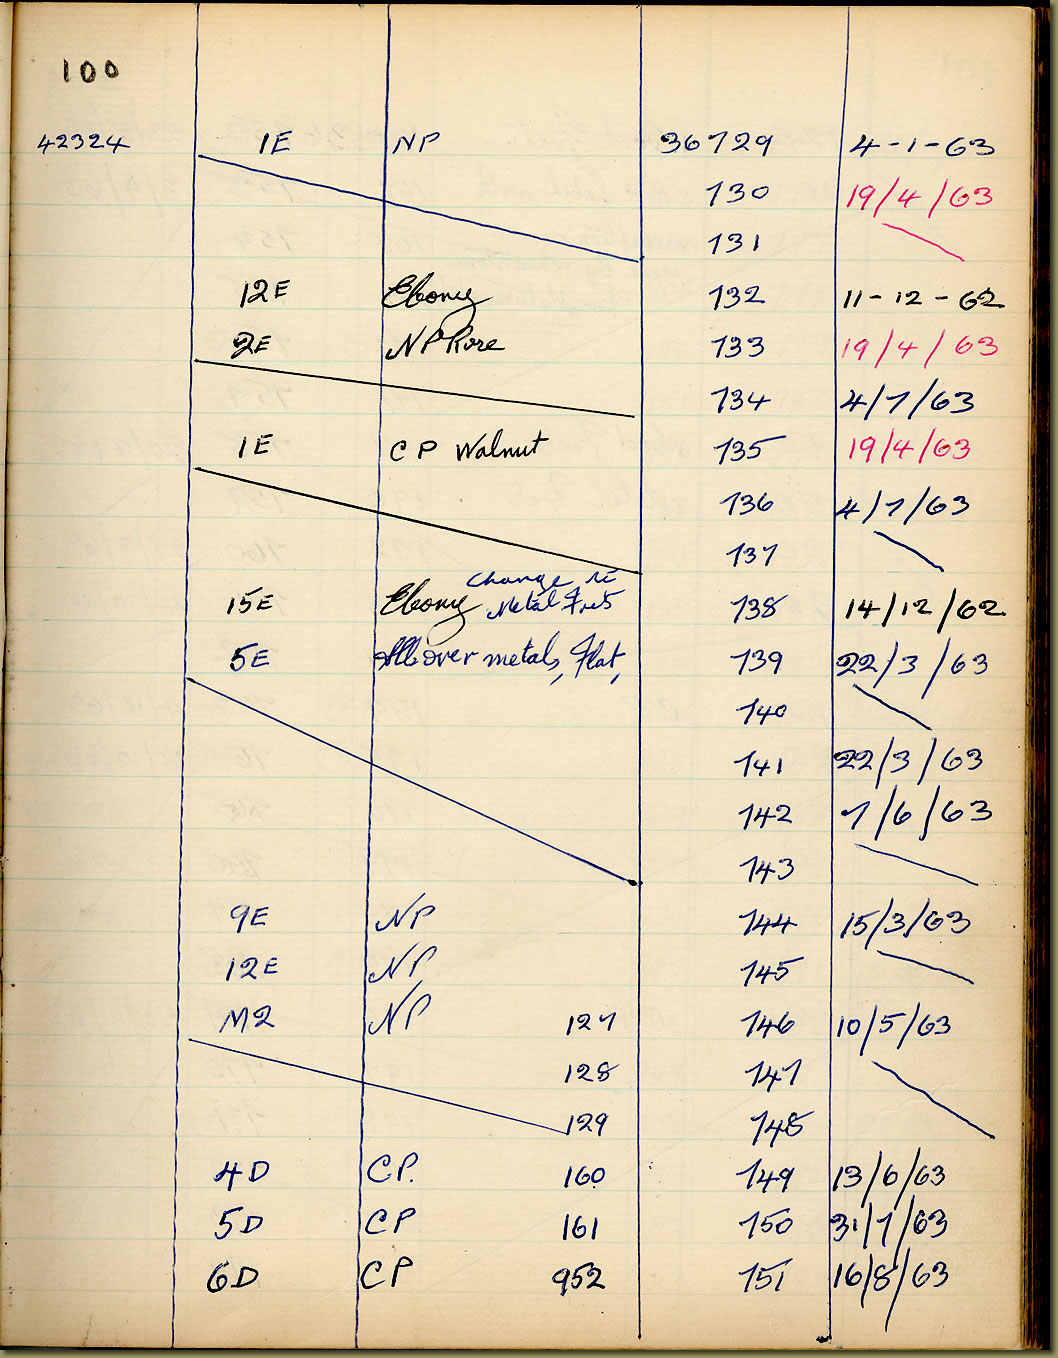 100
42324 1E NP 36729 4-1-63
730 19/4/63
731
12E Ebony 732 11-12-62
2E NP Rose 733 19/4/63
734 4/7/63
1E CP Walnut 735 19/4/63
736 4/7/63
737
Change
15E Ebony Metal Frets 738 14/12/62
5E All over metal, Flat, 739 22/3/63
740
741 22/3/63
742 7/6/63
743
9E NP 744 15/3/63
12E NP 745
M2 NP 127 746 10/5/63
128 747
129 748
4D CP. 160 749 13/6/63
5D CP 161 750 31/7/63
6D CP 952 751 16/8/63